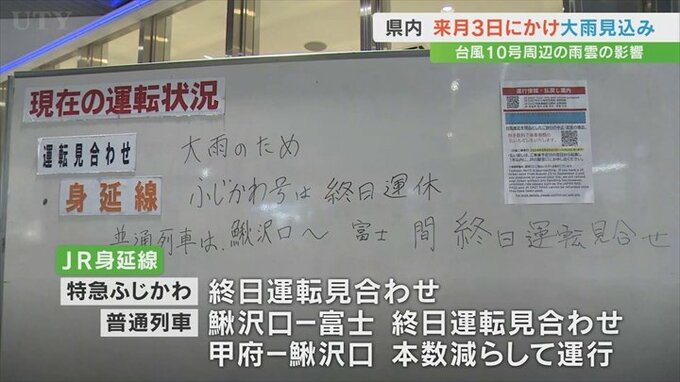 UTY
県内 来月3日にかけ大雨見込み
台風10号周辺の雨雲の影響
現在の運転状況
運行情報・払戻し案内
運転見合わせ
大雨のため
身延線
ふじかわ号は 終日運休
普通列車は、鰍沢口〜富士間 終日運転見合せ
JR身延線
特急ふじかわ 終日運転見合わせ
普通列車 鰍沢口ー富士 終日運転見合わせ
甲府ー鰍沢口 本数減らして運行